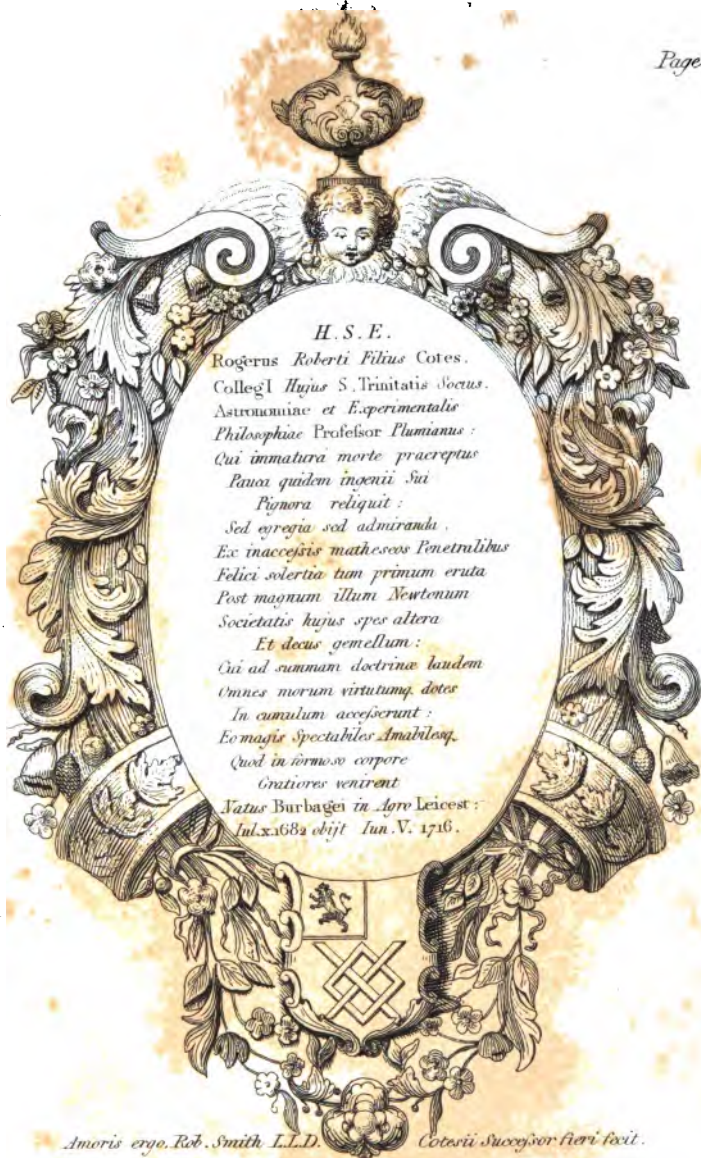 Page
H.S.E.
Rogerus Roberti Filius Cotes.
CollegI Hujus S. Trinitatis Socius.
Astronomiae et Experimentalis
Philosophiae Profeſsor Plumianus:
Qui immatura morte praereptus
Pauca quidem ingenii Sui
Pignora reliquit:
Sed egregia sed admiranda.
Ex inacceſsis matheseos Penetralibus
Felici solertia tum primum eruta
Post magnum illum Newtonum
Societatis hujus spes altera
Et decus gemellum:
Cui ad summam doctrinæ laudem
Omnes morum virtutumq. dotes
In cumulum acceſserunt:
Eo magis Spectabiles Amabilesq.
Quod in formoso corpore
Gratiores venirent
Natus Burbagei in Agro Leicest:
Iul.x.1682 obijt Iun.V. 1716.
Amoris ergo. Rob. Smith L.L.D. Cotesii Succeſsor fieri fecit.